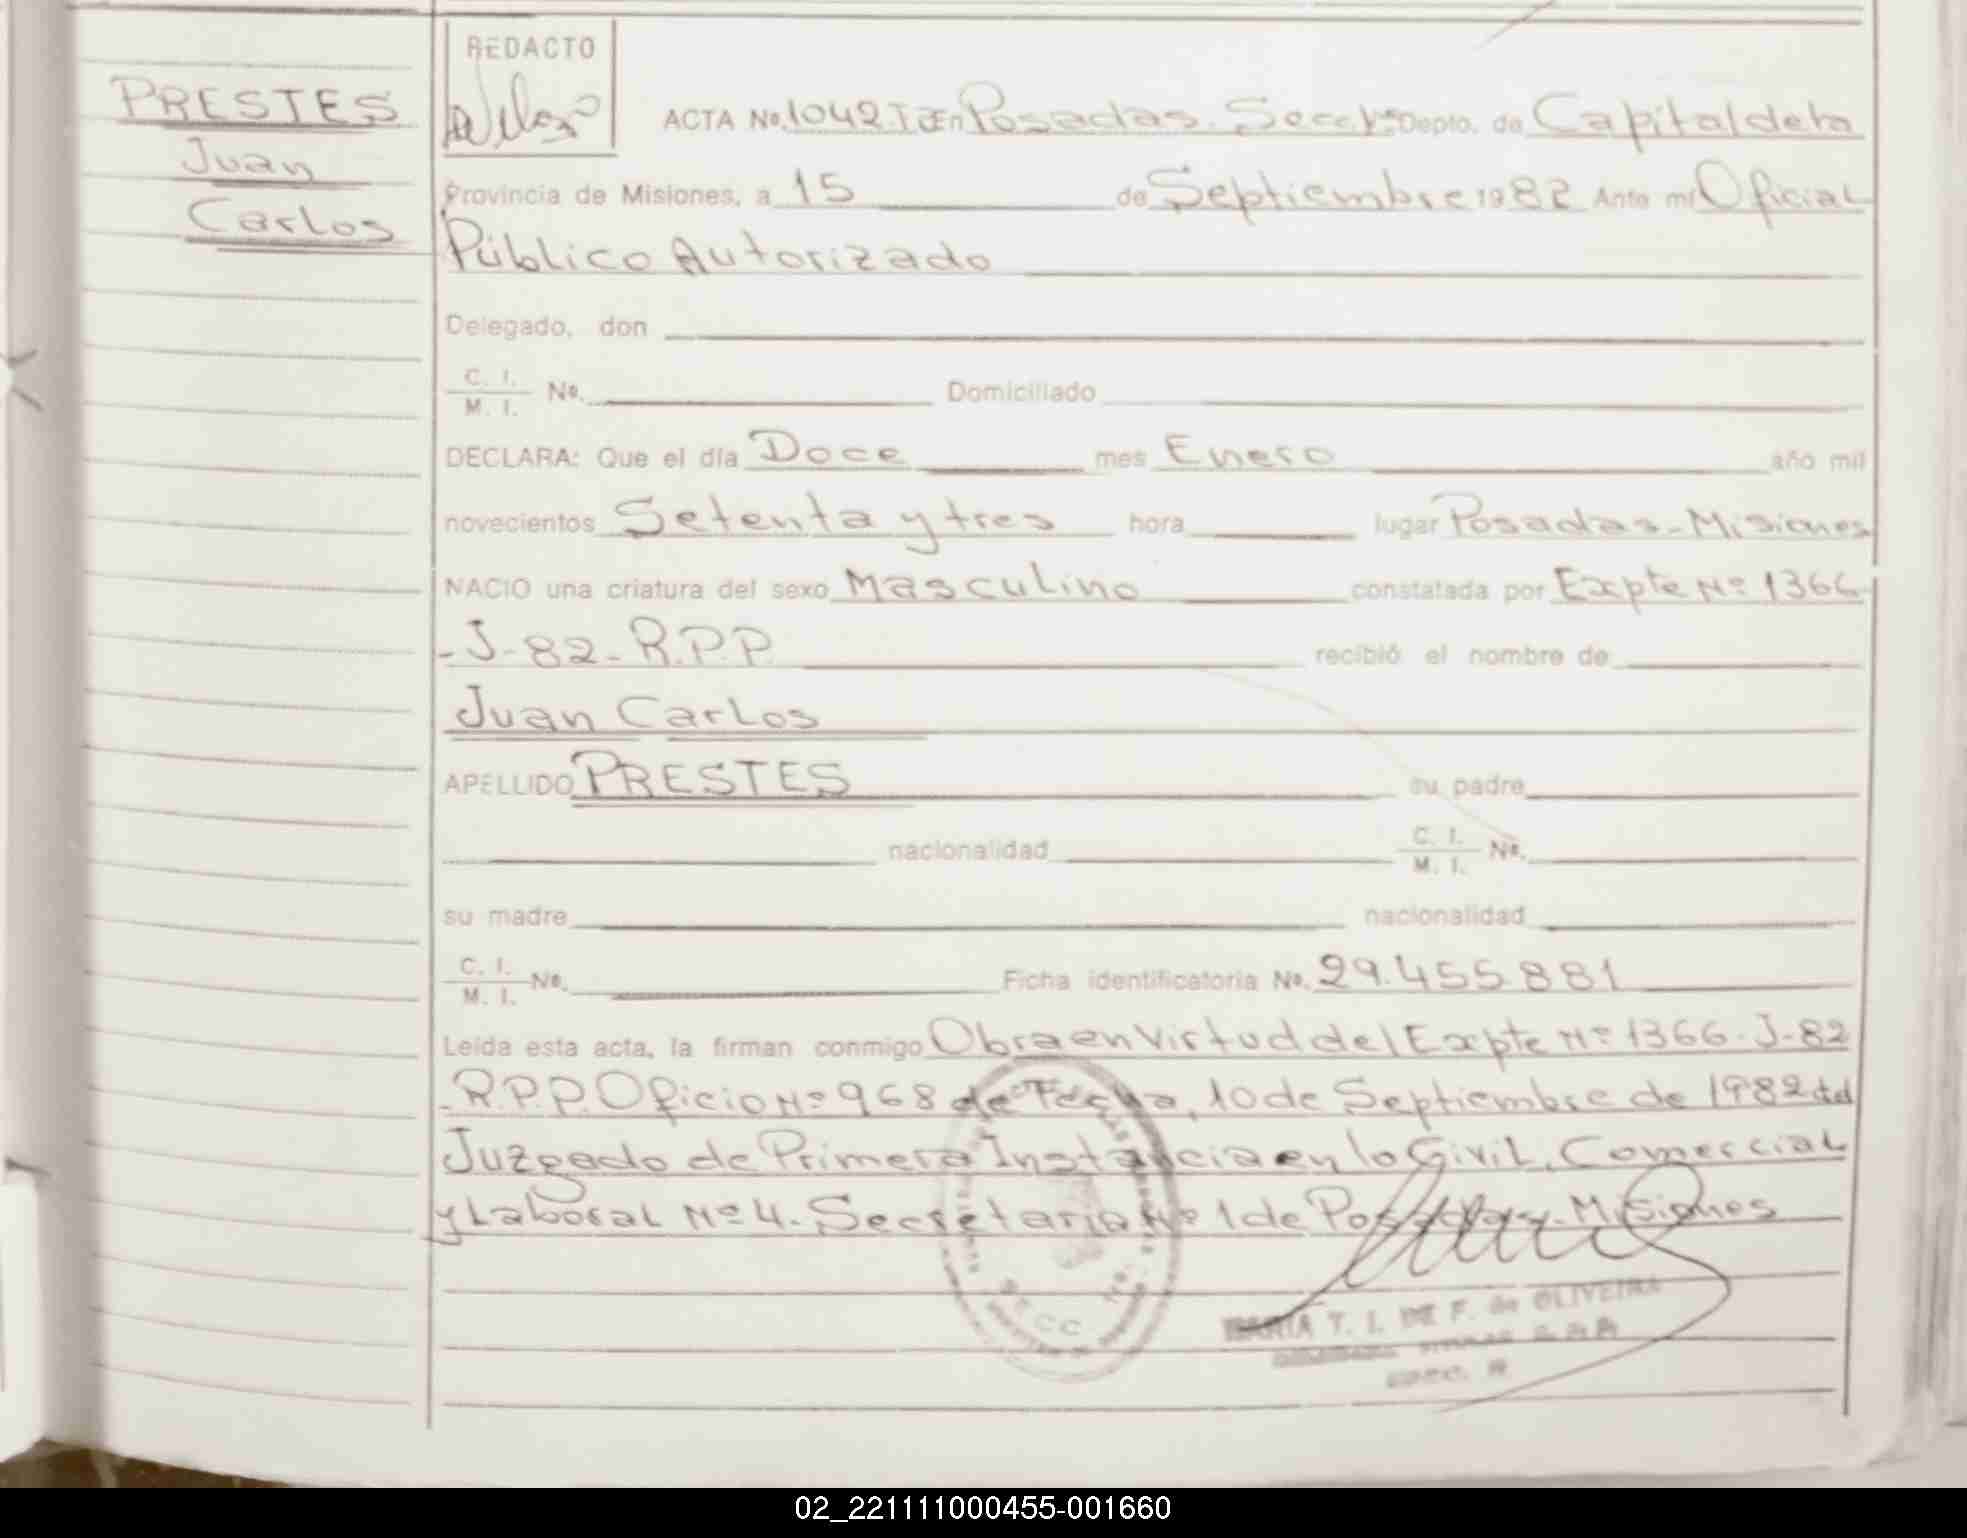 PRESTES
Juan
Carlos
REDACTO
ACTA No. 1042. En Posadas. Secc. 1ª Depto. de Capital de la
Provincia de Misiones, a 15 de Septiembre 1982 Ante mí Oficial
Público Autorizado
Delegado, don
C. I.
M. I. No. Domiciliado
DECLARA: Que el día Doce mes Enero año mil
novecientos Setenta y tres hora lugar Posadas-Misiones
NACIO una criatura del sexo Masculino constatada por Expte Nº 1366
-J-82-R.P.P. recibió el nombre de
Juan Carlos
APELLIDO PRESTES su padre
nacionalidad C. I.
M. I. No.
su madre nacionalidad
C. I.
M. I. No. Ficha identificatoria No. 29.455.881
Leída esta acta, la firman conmigo Obra en Virtud del Expte Nº 1366-J-82
-R.P.P. Oficio Nº 968 de Fecha, 10 de Septiembre de 1982 del
Juzgado de Primera Instancia en lo Civil, Comercial
y Laboral Nº 4. Secretaria Nº 1 de Posadas-Misiones
SECC
MARIA T. I. DE F. de OLIVEIRA
02_221111000455-001660